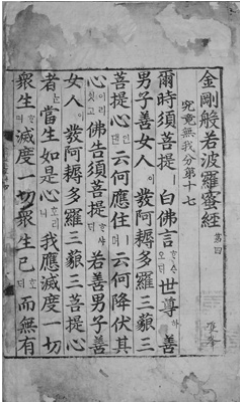 金剛般若波羅蜜經 第四
究竟無我分第十七
爾時須菩提ㅣ白佛言 世尊 善
男子善女人 發阿耨多羅三藐三
菩提心 云何應住 云何降伏其
心 佛告須菩提 若善男子善
女人 發阿耨多羅三藐三菩提心
者 當生如是心 我應滅度一切
衆生 滅度一切衆生已 而無有